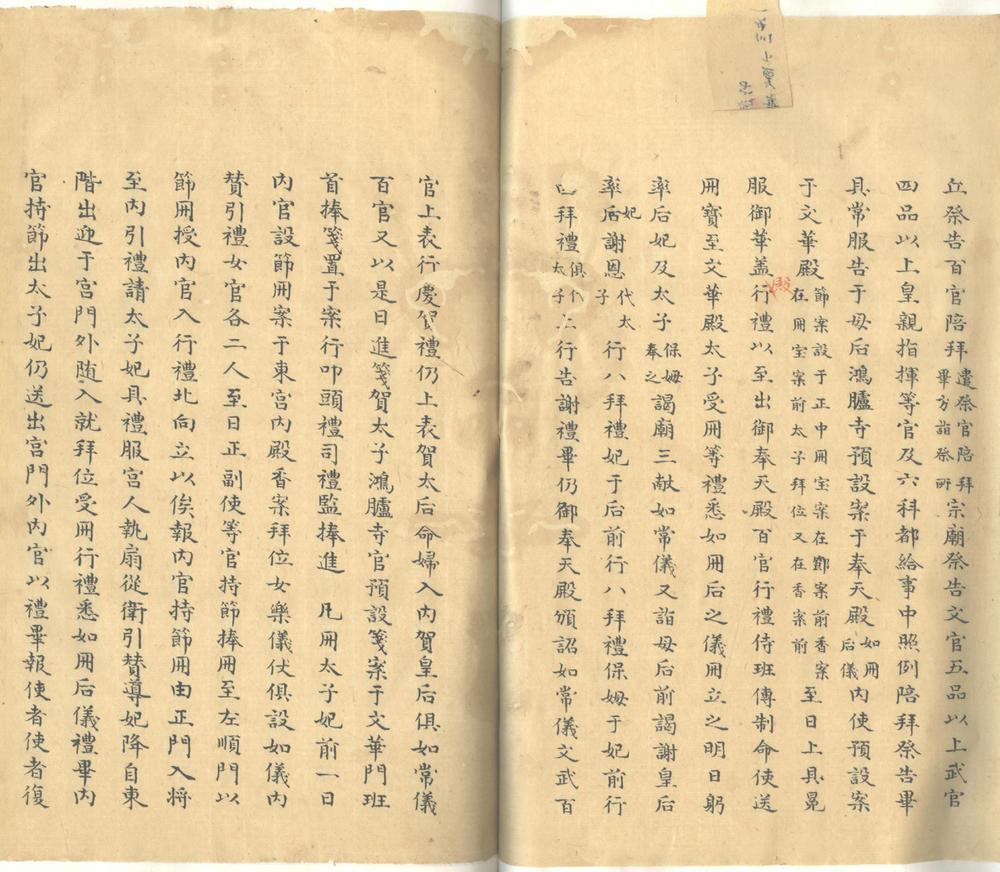 立祭告百官陪拜遣祭官陪拜畢方詣祭所宗廟祭告文官五品以上武官
四品以上皇親指揮等官及六科都給事中照例陪拜祭告畢
具常服告于母后鴻臚寺預設案于奉天殿如冊后儀內使預設案
于文華殿節案設于正中冊宝案在鄧案前香案在冊宝案前太子拜位又在香案前至日上具冕
服御華盖殿行禮以至出御奉天殿百官行禮侍班傳制命使送
冊寶至文華殿太子受冊等禮悉如冊后之儀冊立之明日躬
率后妃及太子保姆奉之謁廟三献如常儀又詣母后前謁謝皇后
率后妃謝恩代太子行八拜禮妃于后前行八拜禮保姆于妃前行
四拜禮俱代太子上行告謝禮畢仍御奉天殿頒詔如常儀文武百
官上表行慶賀禮仍上表賀太后命婦入內賀皇后俱如常儀
百官又以是日進箋賀太子鴻臚寺官預設箋案于文華門班
首捧箋置于案行叩頭禮司禮監捧進 凡冊太子妃前一日
內官設節冊案于東宮內殿香案拜位女樂儀仗俱設如儀內
賛引禮女官各二人至日正副使等官持節捧冊至左順門以
節冊授內官入行禮北向立以俟報內官持節冊由正門入將
至內引禮請太子妃具禮服宮人執扇從衛引賛導妃降自東
階出迎于宮門外随入就拜位受冊行禮悉如冊后儀禮畢內
官持節出太子妃仍送出宮門外內官以禮畢報使者使者復